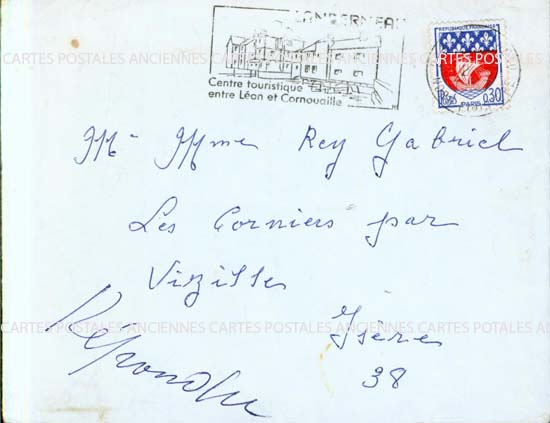 LANDERNEAU
REPUBLIQUE FRANÇAISE
Centre touristique
entre Léon et Cornouaille
0,30
PARIS
CARTES POSTALES ANCIENNES CARTES POSTALES ANCIENNES CARTES POSTALES ANCIENNES
Mr Mme Rey Gabriel
Les Corniers par
Vizille
Isère
38
Répondre
CARTES POSTALES ANCIENNES CARTES POSTALES ANCIENNES CARTES POTALES ANCIENNES